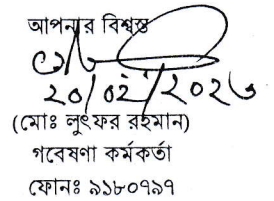 আপনার বিশ্বস্ত
২০/০২/২০২৩
(মোঃ লুৎফর রহমান)
গবেষণা কর্মকর্তা
ফোনঃ ৯১৮০৭৯৭